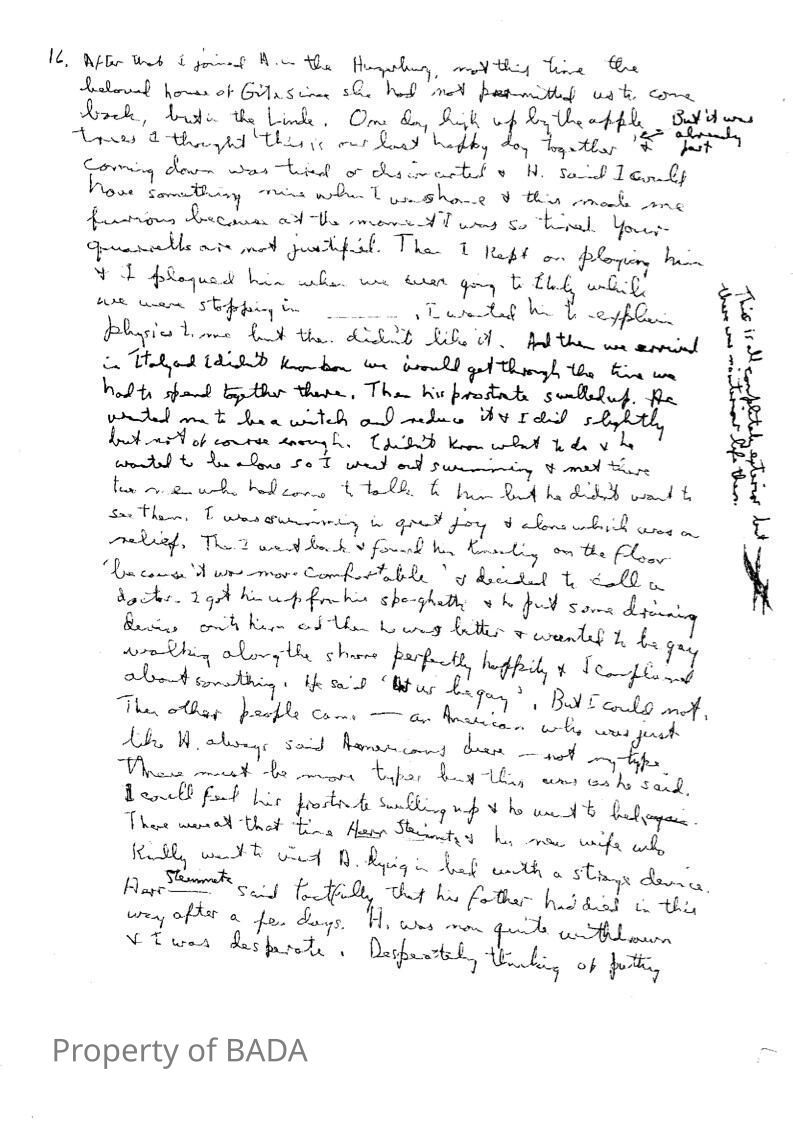 16. After that I joined H. in the Hungerburg, not this time the
beloved house of Gites since she had not permitted us to come
back, but in the Linde. One day high up by the apple
trees I thought 'this is our last happy day together' &
But it was
already
past
coming down was tired or disoriented & H. said I could
have something nice when I was home & this made me
furious because at the moment I was so tired. Your
quarrells are not justified. Then I kept on plaguing him
& I plagued him when we were going to Italy while
we were stopping in ______, I wanted him to explain
physics to me but then didn't like it. And then we arrived
in Italy and I didn't know how we would get through the time we
had to spend together there. Then his prostrate swelled up. He
wanted me to be a witch and reduce it & I did slightly
but not of course enough. I didn't know what to do & he
wanted to be alone so I went out swimming & met there
two men who had come to talk to him but he didn't want to
see them. I was swimming in great joy & alone which was a
relief. The I went back & found him kneeling on the floor
'because it was more comfortable' & decided to call a
doctor. I got him up from his spaghetti & he put some draining
device onto him and then he was better & wanted to be gay
walking along the shore perfectly happily & I complained
about something. He said 'let us be gay'. But I could not.
Then other people came — an American who was just
like H. always said Americans were — not my type
There must be more types but this was as he said.
I could feel his prostrate swelling up & he went to bed again.
There were at that time Herr Steinmetz & his new wife who
kindly went to visit H. lying in bed with a strange device.
Herr Steinmetz said tactfully that his father had died in this
way after a few days. H. was now quite withdrawn
& I was desperate. Desperately thinking of putting
This is all completely exterior but
there was no interior life then.
Property of BADA